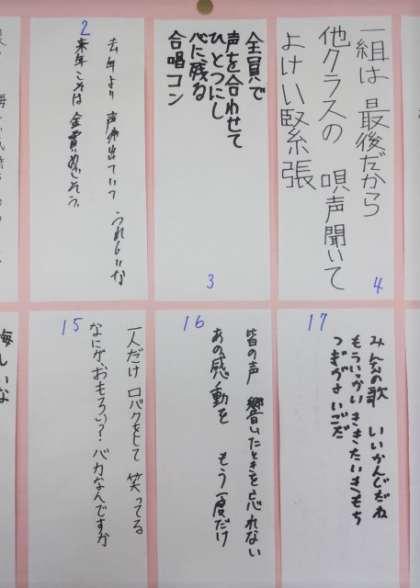 一組は 最後だから
他クラスの 唄声聞いて
よけい緊張
4
全員で
声を合わせて
ひとつにし
心に残る
合唱コン
3
2
去年より 声が出ていて うれしいな
来年こそは 金賞めざそう
17
みんなの歌 いいかんじだね
もういっかい ききたいきもち
つぎがよいごだ
16
皆の声 響いたときを忘れない
あの感動を もう一度だけ
15
一人だけ 口パクをして 笑ってる
なにが、おもろいの?バカなんですか
悔しいな